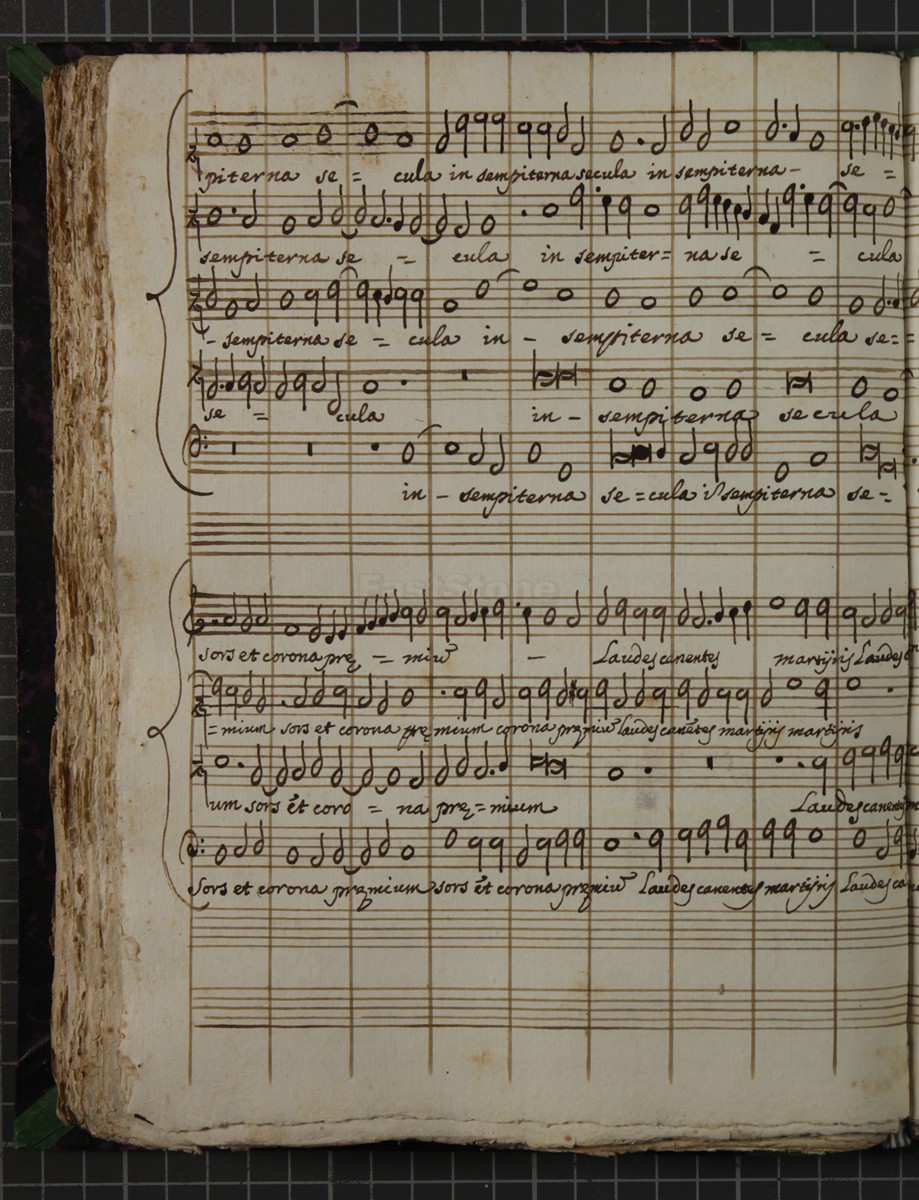 piterna se = cula in sempiterna secula in sempiterna - se =
sempiterna se = cula in sempiter = na se = cula
- sempiterna se = cula in - sempiterna se = cula se =
se = cula in - sempiterna secula
in - sempiterna se = cula ij sempiterna se -
EastStone
sors et corona prę = miū - Laudes canentes martijris Laudes
= mium sors et corona prę mium corona pręmiū laudes canētes martijris martijris
um sors et coro = na prę = mium Laudes canentes
Sors et corona pręmium sors et corona pręmiū Laudes canentes martijris Laudes ca